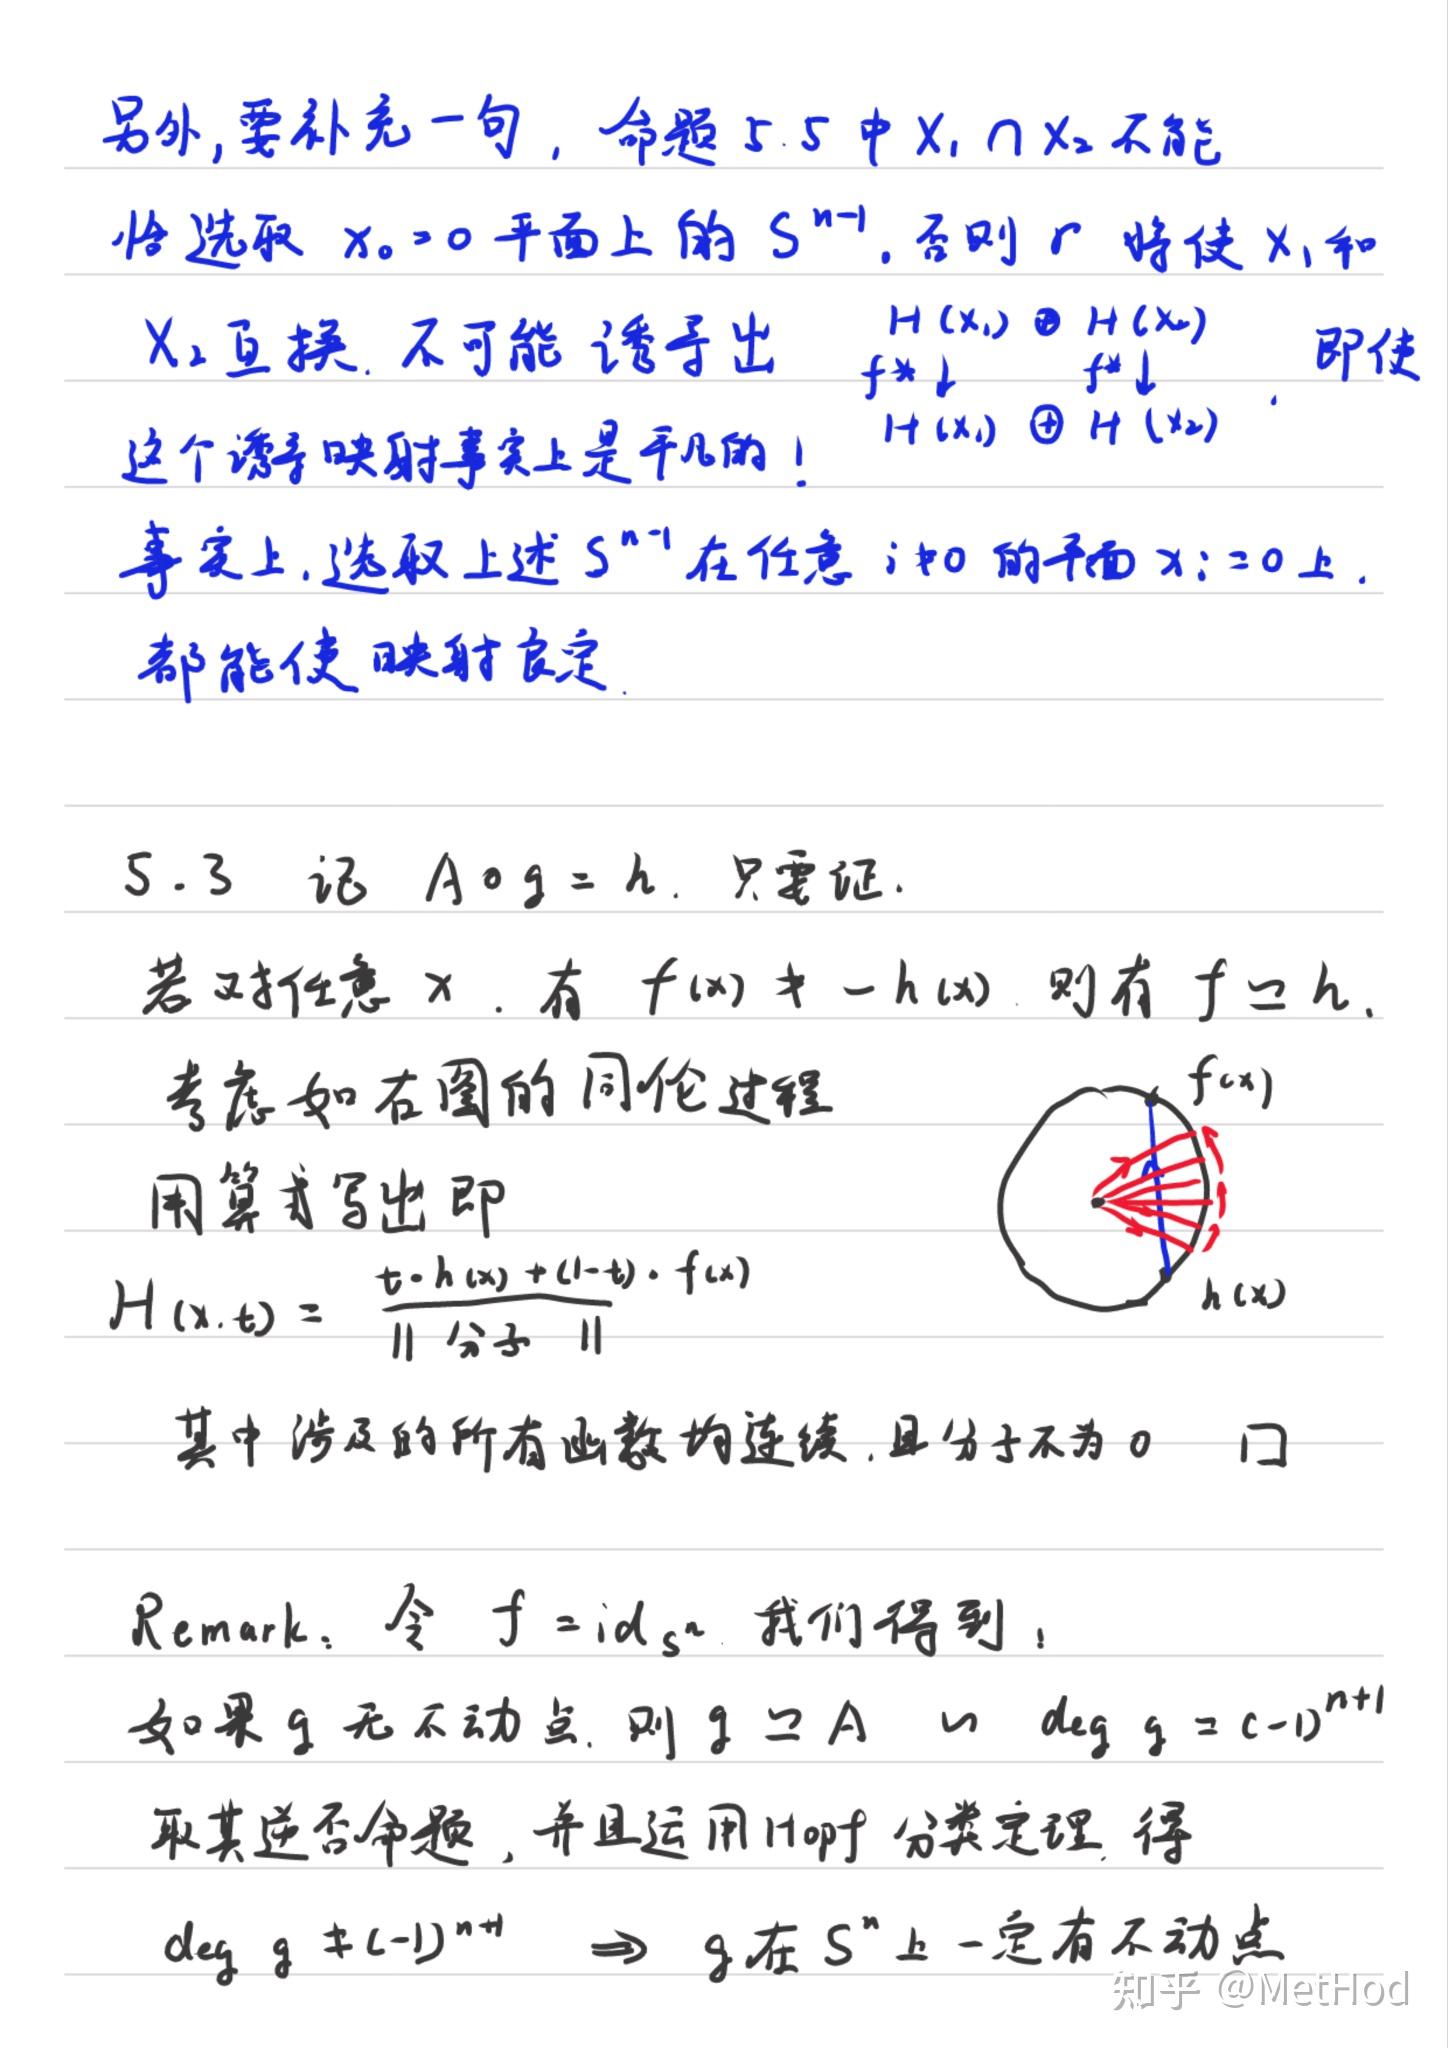 另外,要补充一句, 命题5.5中 X₁∩X₂不能
恰选取 x₀=0平面上的 Sⁿ⁻¹. 否则 r 将使 X₁和
X₂互换. 不可能诱导出 H(X₁) ⊕ H(X₂) . 即使
f* ↓ f* ↓
H(X₁) ⊕ H(X₂)
这个诱导映射事实上是平凡的!
事实上, 选取上述 Sⁿ⁻¹在任意 i≠0 的平面 xᵢ=0上.
都能使映射良定.
5.3 记 A∘g=h. 只要证.
若对任意 x. 有 f(x) ≠ -h(x). 则有 f≃h.
考虑如右图的同伦过程
f(x)
用算式写出即
H(x.t) = t·h(x)+(1-t)·f(x)
‖分子‖
h(x)
其中涉及的所有函数均连续.且分子不为0 □
Remark: 令 f=id_Sⁿ. 我们得到:
如果 g 无不动点. 则 g≃A ∽ deg g = (-1)ⁿ⁺¹
取其逆否命题, 并且运用Hopf分类定理. 得
deg g ≠(-1)ⁿ⁺¹ ⇒ g在Sⁿ上一定有不动点
知乎 @MetHod